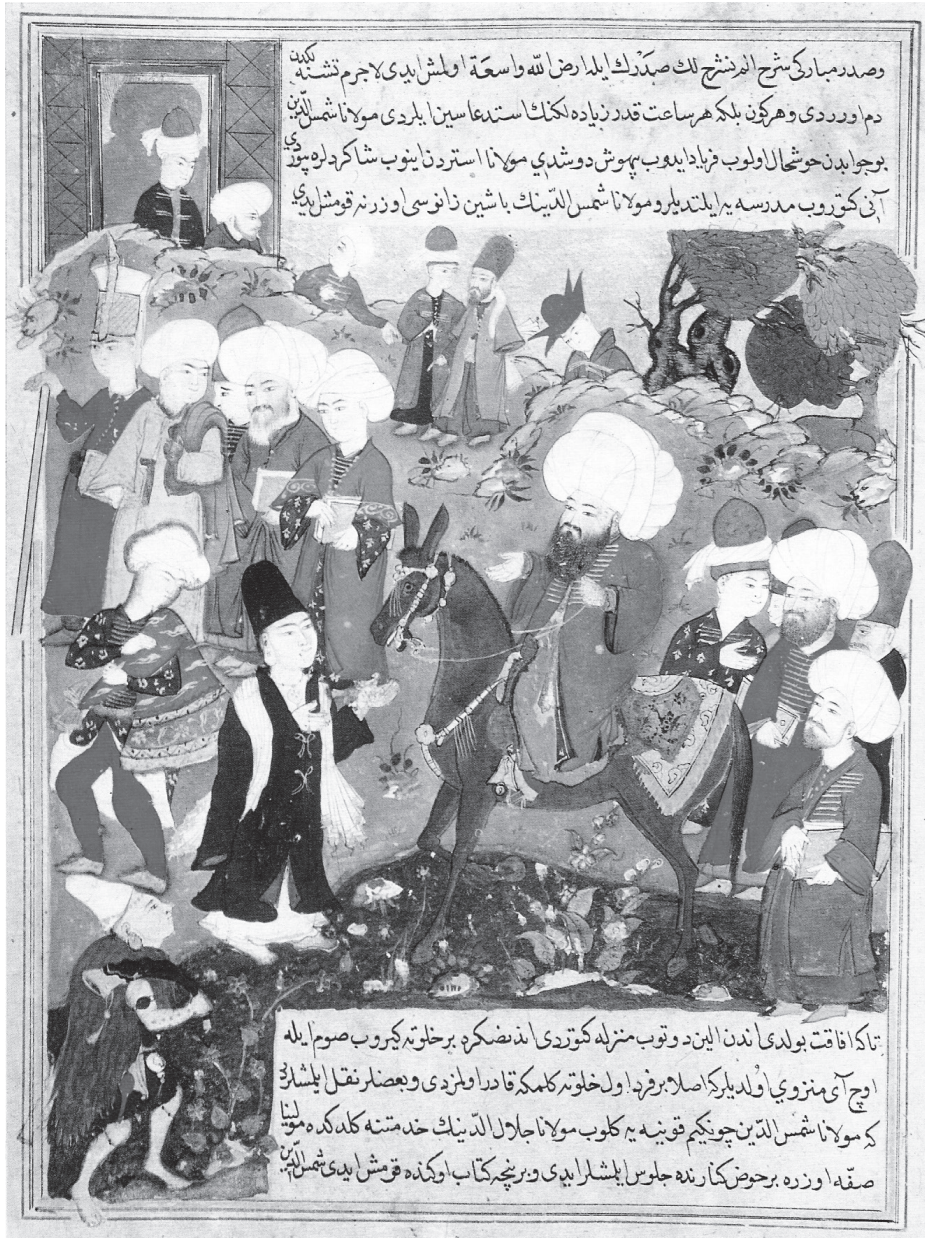 وصدر مباركى شرح الم نشرح لك صدرك ايله ارض الله واسعة اولمش ايدى لاجرم تشنه لكدن
دم اوردى وهركون بلكه هر ساعت قدر زياده لكنك استدعاسين ايلردى مولانا شمس الدين
بو جوابدن خوشحال اولوب فرياد ايدوب بيهوش دوشدي مولانا استردن اينوب شاكردلره بيوردي
آنى كتوروب مدرسه يه ايلتديلر ومولانا شمس الدينك باشين زانوسى اوزرنه قومشلرايدي
تاكه افاقت بولدى اندن الين دوتوب منزله كتوردى اندنصكره بر خلوته كيروب صوم ايله
اوچ آى منزوي اولديلركه اصلا بر فرد اول خلوته كلمكه قادر اولمزدى وبعضلر نقل ايلمشلر
كه مولانا شمس الدين چونكيم قونيه يه كلوب مولانا جلال الدينك خدمتنه كلدكده مولينا
صفه اوزره بر حوض كنارنده جلوس ايلمشلر ايدى وبرنچه كتاب اوكنده قومش ايدى شمس الدين